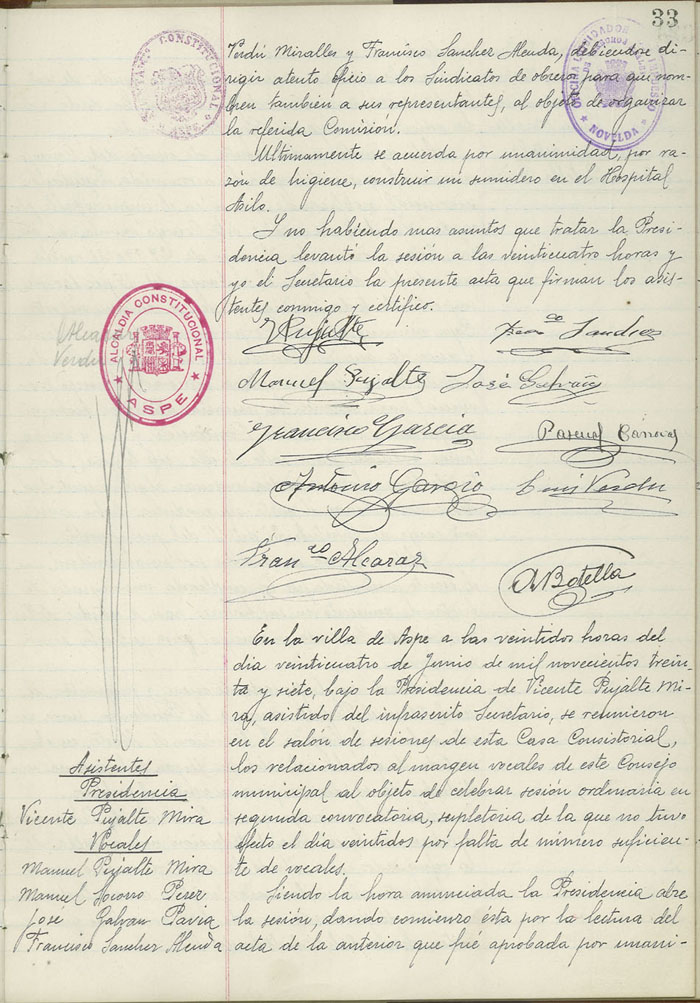 33
Verdú Miralles y Francisco Sancher Alenda, debiendose di-
rigir atento oficio a los Sindicatos de obreros para que nom-
bren tambien a sus representantes, al objeto de organizar
la referida Comisión.
Ultimamente se acuerda por unanimidad, por ra-
zón de higiene, construir un sumidero en el Hospital
Asilo.
Y no habiendo mas asuntos que tratar la Presi-
dencia levantó la sesión a las veinticuatro horas y
yo el Secretario la presente acta que firman los asis-
tentes conmigo y certifico.
ALCALDIA CONSTITUCIONAL
ASPE
NOVELDA
VPujalte
Manuel Pujalte
José Galvañ
Francisco García
Antonio
Luis Verdú
Fran.co Alcaraz
ABotella
En la villa de Aspe a las veintidos horas del
dia veinticuatro de Junio de mil novecientos trein-
ta y siete, bajo la Presidencia de Vicente Pujalte Mi-
ra, asistido del infrascrito Secretario, se reunieron
en el salón de sesiones de esta Casa Consistorial,
los relacionados al margen vocales de este Consejo
municipal al objeto de celebrar sesión ordinaria en
segunda convocatoria, supletoria de la que no tuvo
efecto el dia veintidos por falta de número suficien-
te de vocales.
Siendo la hora anunciada la Presidencia abre
la sesión, dando comienzo ésta por la lectura del
acta de la anterior que fué aprobada por unani-
Asistentes
Presidencia
Vicente Pujalte Mira
Vocales
Manuel Pujalte Mira
Manuel Socorro Perez
Jose Galvan Pavia
Francisco Sancher Alenda